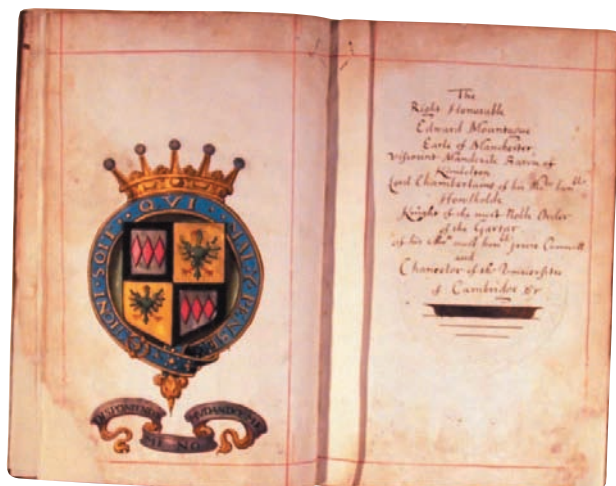 SOIT · QVI · MAL · Y · PENSE
The
Right Honorable
Edward Mountague
Earle of Manchester
Viscount Mandevile Baron of
Kimbolton
Lord Chamberlaine of his Ma:ties hon:ble
Houshold
Knight of the most Noble Order
of the Garter
of his Ma:ties most hon:ble Privie Councell
and
Chancelor of the Universitie
of Cambridge &c